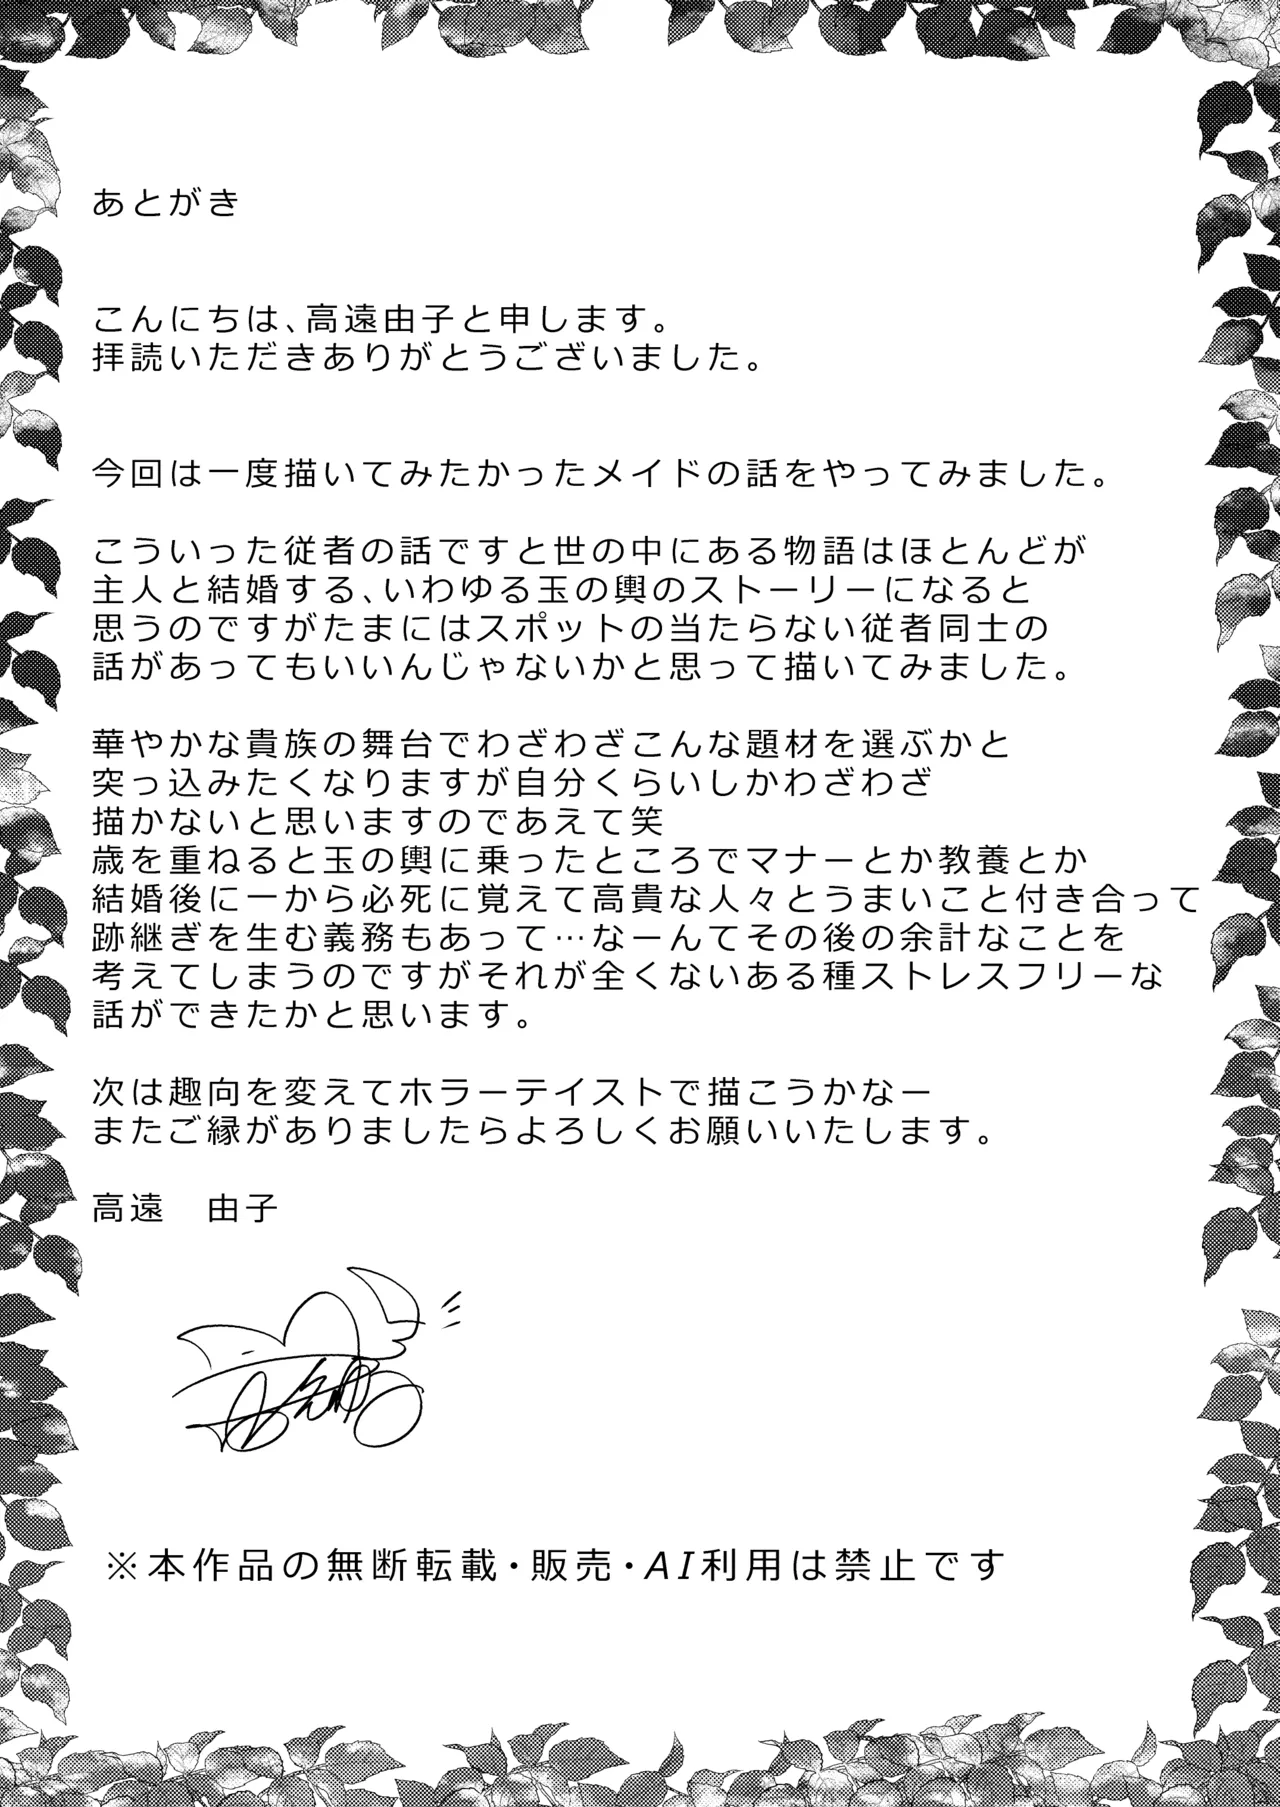 あとがき
こんにちは、高遠由子と申します。
拝読いただきありがとうございました。
今回は一度描いてみたかったメイドの話をやってみました。
こういった従者の話ですと世の中にある物語はほとんどが
主人と結婚する、いわゆる玉の輿のストーリーになると
思うのですがたまにはスポットの当たらない従者同士の
話があってもいいんじゃないかと思って描いてみました。
華やかな貴族の舞台でわざわざこんな題材を選ぶかと
突っ込みたくなりますが自分くらいしかわざわざ
描かないと思いますのであえて笑
歳を重ねると玉の輿に乗ったところでマナーとか教養とか
結婚後に一から必死に覚えて高貴な人々とうまいこと付き合って
跡継ぎを生む義務もあって…なーんてその後の余計なことを
考えてしまうのですがそれが全くないある種ストレスフリーな
話ができたかと思います。
次は趣向を変えてホラーテイストで描こうかなー
またご縁がありましたらよろしくお願いいたします。
高遠　由子
※本作品の無断転載・販売・AI利用は禁止です